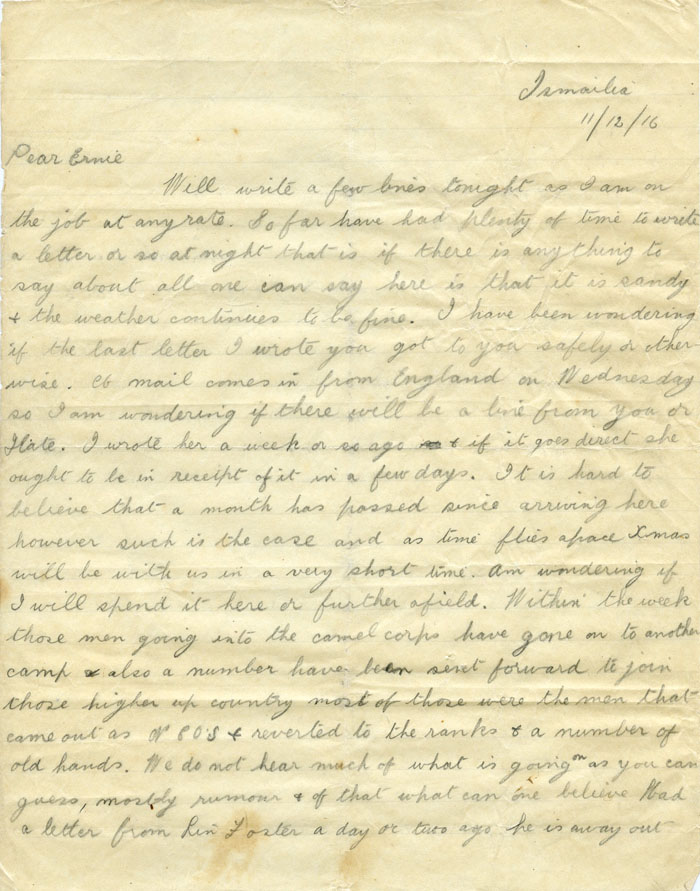 Ismailia
11/12/16
Dear Ernie
Will write a few lines tonight as I am on
the job at anyrate. So far have had plenty of time to write
a letter or so at night that is if there is anything to
say about all one can say here is that it is sandy
& the weather continues to be fine. I have been wondering
if the last letter I wrote you got to you safely or other-
wise. A mail comes in from England on Wednesday
so I am wondering if there will be a line from you or
Kate. I wrote her a week or so ago & if it goes direct she
ought to be in receipt of it in a few days. It is hard to
believe that a month has passed since arriving here
however such is the case and as time flies apace Xmas
will be with us in a very short time. Am wondering if
I will spend it here or further afield. Within the week
those men going into the camel corps have gone on to another
camp & also a number have been sent forward to join
those higher up country most of those were the men that
came out as NCOS & reverted to the ranks & a number of
old hands. We do not hear much of what is going on as you can
guess, mostly rumour & of that what can one believe Had
a letter from Foster a day or two ago he is away out